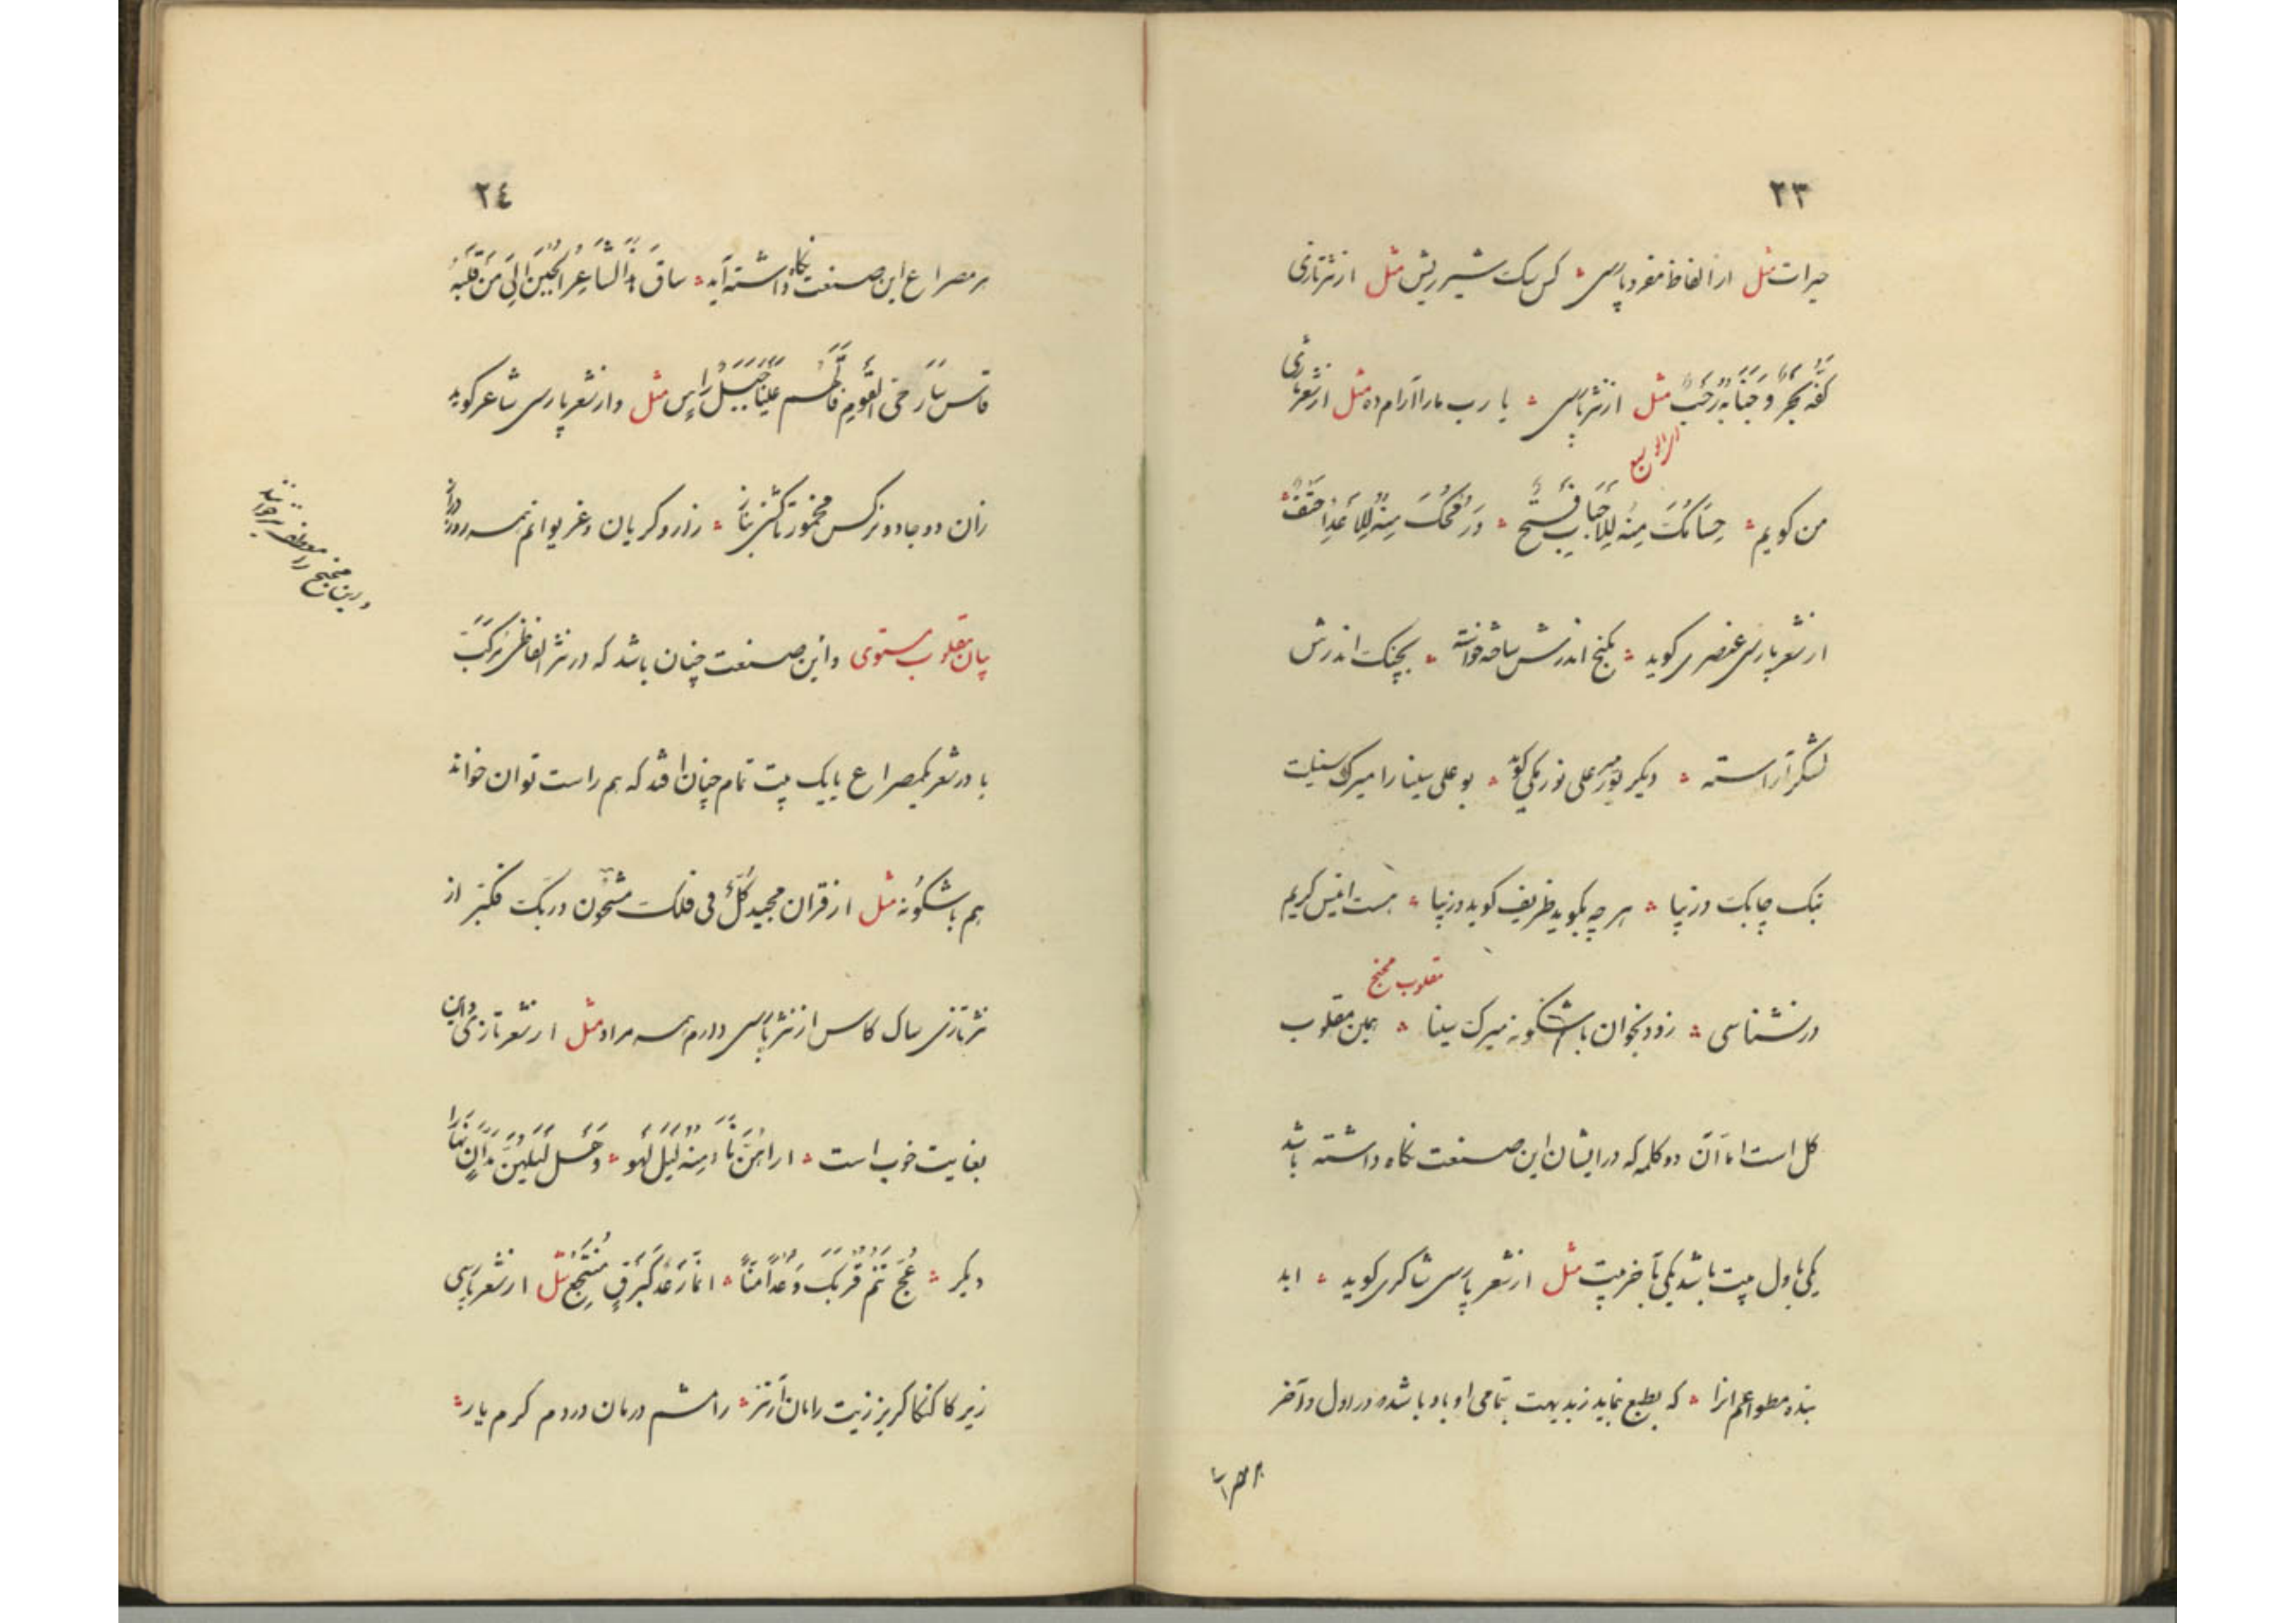 ۲۳
حیرات مثل از الفاظ مفرد پارسی کس یک شیر ریش مثل از نثر تازی
کفه بحر و جنابه رحب مثل از نثر پارسی یا رب مارا آرام ده مثل از شعر تازی
من کویم حسامک منه للاحباب فتح و رمحک منه للاعدا حتف
از شعر پارسی عنصری کوید بکنج اندرش ساخته خواسته بجنک اندرش
لشکر آراسته دیکر علی کوید بو علی سینا را میرک سینات
نبک چابک درزیا هر چه بکوید ظریف کوید درزیا هست انیس کریم
مقلوب مجنح
درنشناسی زود بخوان باشکونه میرک سینا همین مقلوب
کل است اما آن دو کلمه که درایشان این صنعت نکاه داشته باشد
یکی باول بیت باشد یکی بآخر بیت مثل از شعر پارسی شاکری کوید
بنده مطواعم انرا که بطبع نماید زبدیهت بتمامی او باد باشد در اول و آخر
هر مصراع
۲٤
هر مصراع این صنعت نکاه داشته آید ساق هذا الشاعر الحین الی من قلبه
قاس سار حی القوم فالهم علینا جبل راس مثل و از شعر پارسی شاعر کوید
زان دو جادو نرکس مخمور با کشی بناز زار و کریان و غریوانم همه روز دراز
بیان مقلوب مستوی و این صنعت چنان باشد که در نثر الفاظی مرکب
یا در شعر یکمصراع یا یک بیت تمام چنان افتد که هم راست توان خواند
هم باشکونه مثل از قران مجید کل فی فلک مشحون دربک فکبر از
نثر تازی ساک کاس از نثر پارسی دارم همه مراد مثل از شعر تازی واین
بغایت خوب است ارانهن نادمنه لیل لهو وهل لیلهن مدان نهارا
دیکر عج تنم قربک دعدا منا انما دعد کبرق منتجع مثل از شعر پارسی
رامشم درمان دردم کرم یار